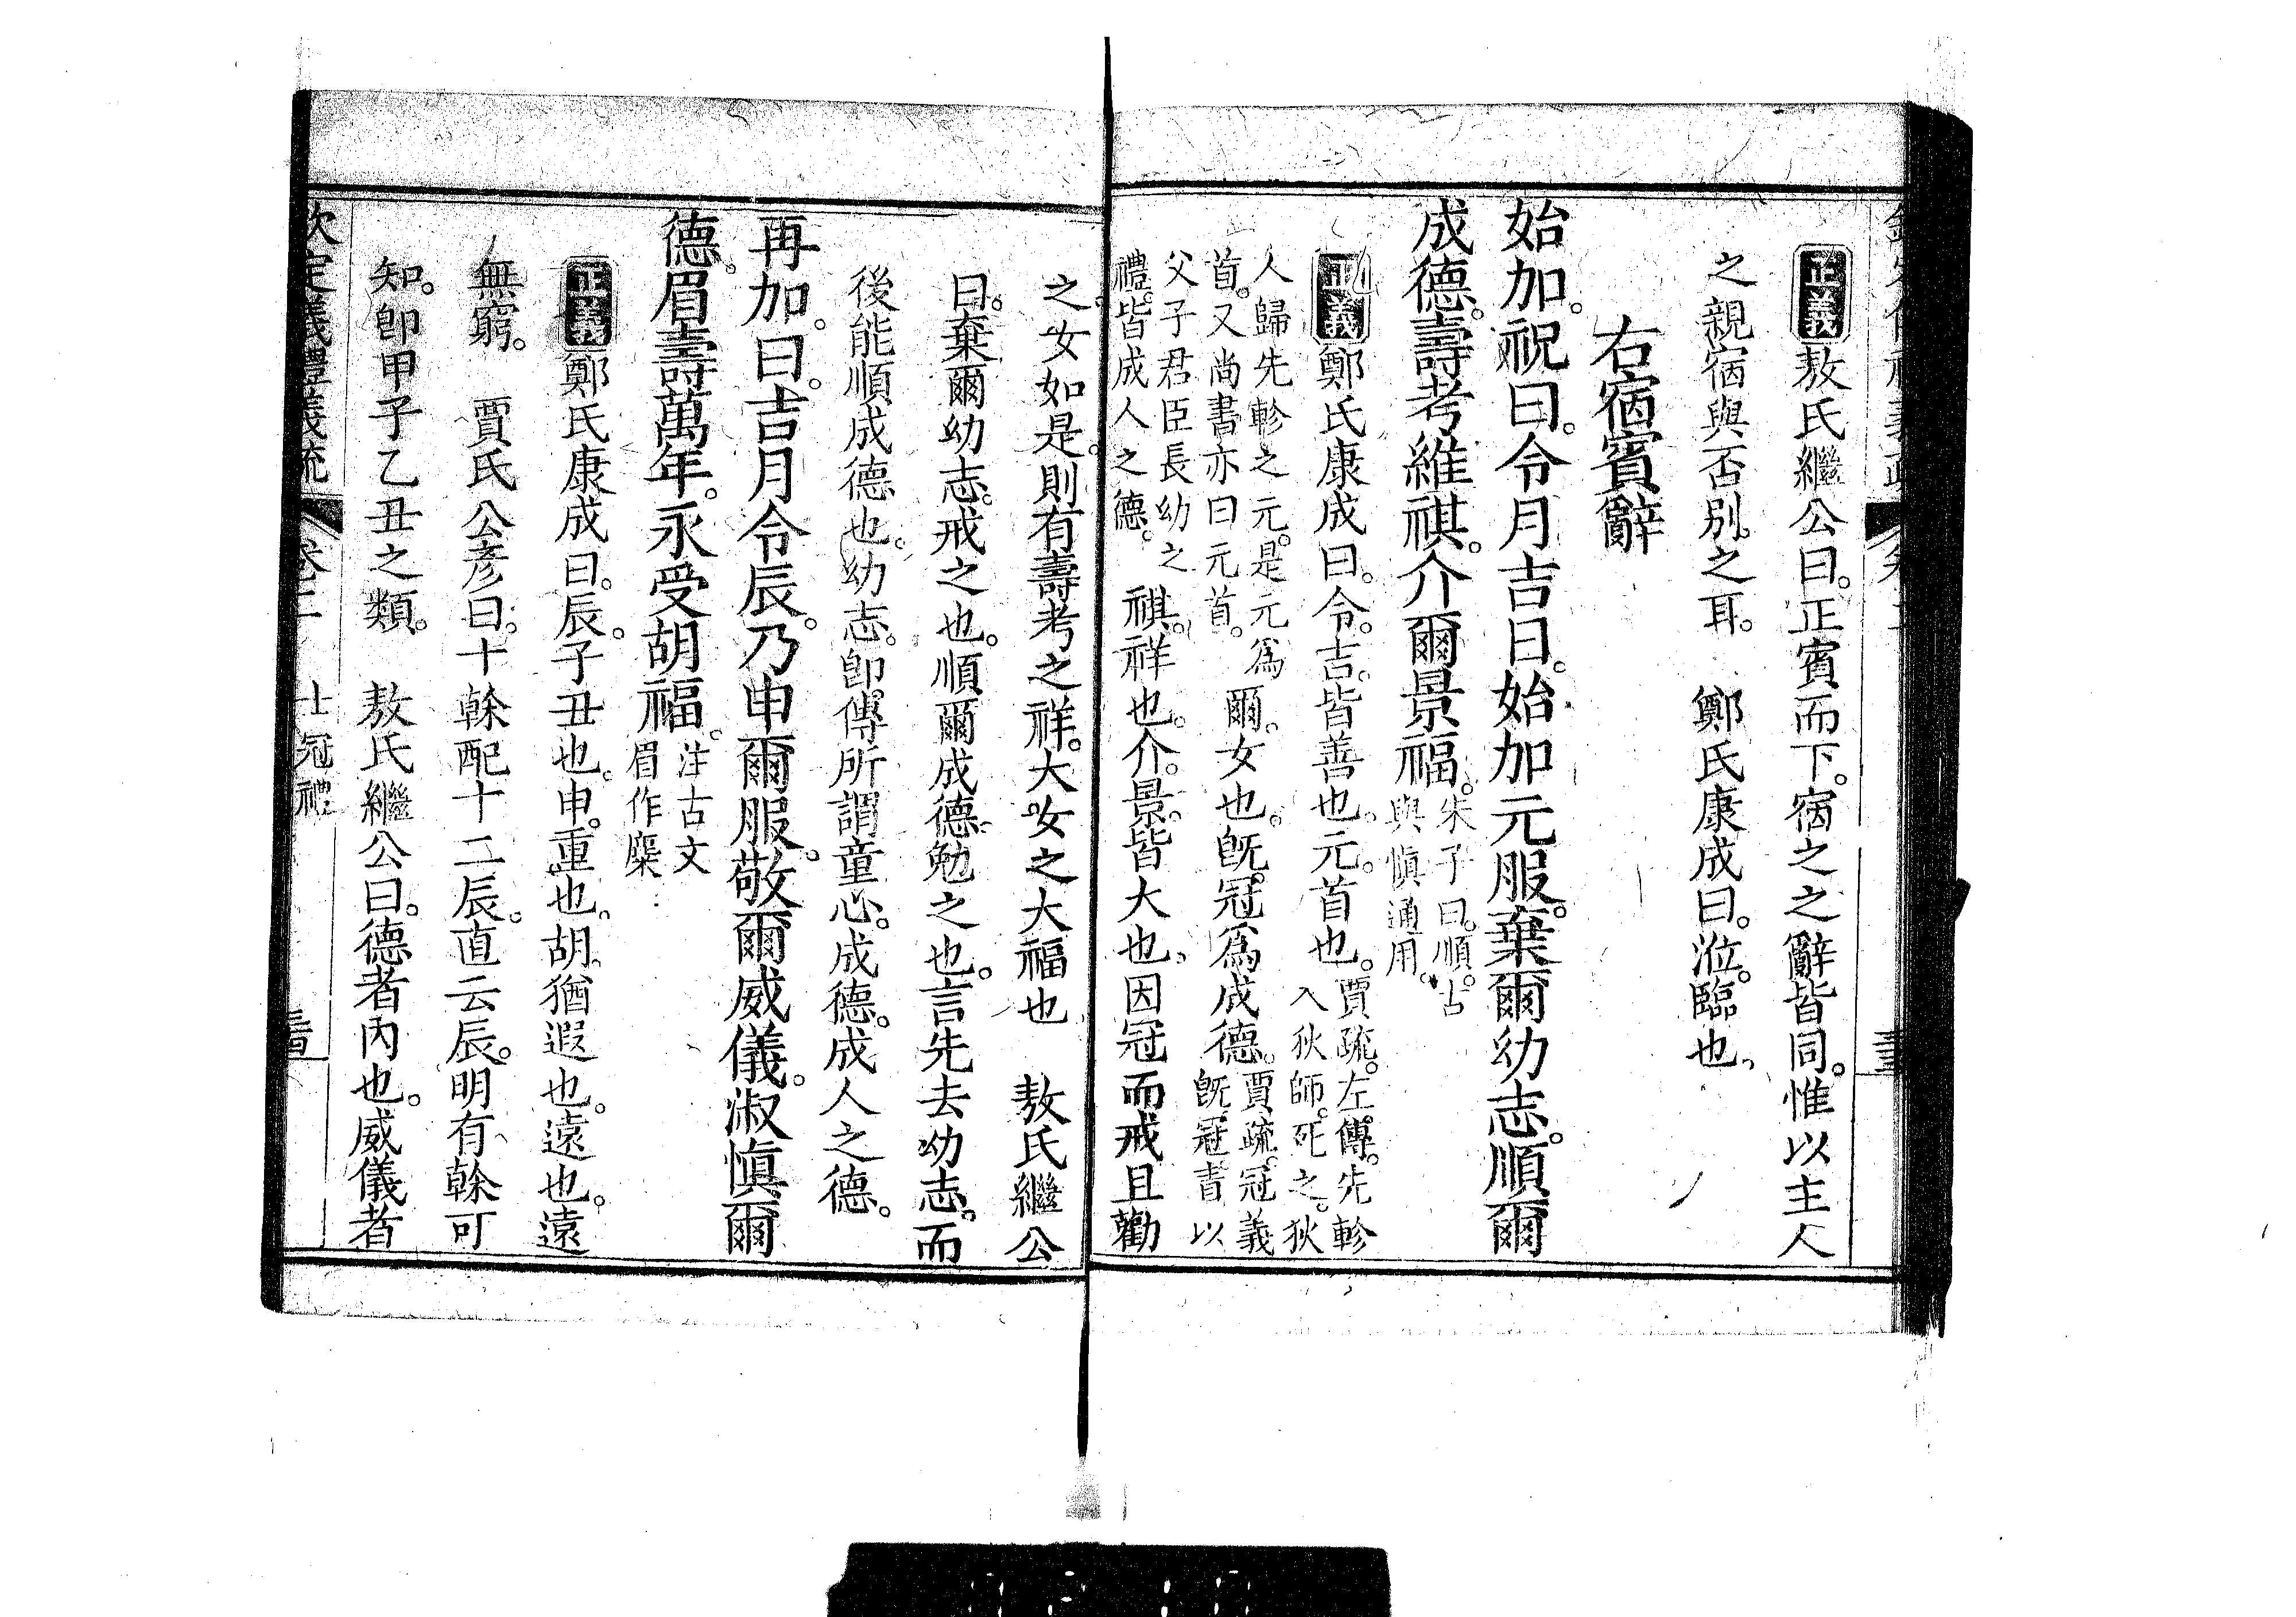 正義敖氏繼公曰。正賓而下。宿之之辭皆同。惟以主人
之親宿與否別。之耳。 鄭氏康成曰。涖。臨也。
右宿賓辭
始加。祝曰。令月吉日。始加元服。棄爾幼志。順爾
成德。壽考維祺。介爾景福。朱子曰。順。古
與愼通用。
正義鄭氏康成曰。令。吉。皆善也。元。首也。賈疏。左傳。先軫
入狄師。死之。狄
人歸先軫之元。是元爲
首。又尚書亦曰元首。爾。女也。旣冠爲成德。賈疏。冠義
旣冠責以
父子君臣長幼之
禮。皆成人之德。祺。祥也。介。景。皆大也。因冠而戒且勸
之。女如是。則有壽考之祥。大女之大福也 敖氏繼公
曰。棄爾幼志。戒之也。順爾成德。勉之也。言先去幼志。而
後能順成德也。幼志。卽傳所謂童心。成德。成人之德。
再加。曰。吉月令辰。乃申爾服。敬爾威儀。淑愼爾
德。眉壽萬年。永受胡福。注古文
眉作麋
正義鄭氏康成曰。辰。子丑也。申。重也。胡。猶遐也。遠也。遠
無窮。 賈氏公彥曰。十榦配十二辰。直云辰。明有榦可
知。卽甲子乙丑之類。 敖氏繼公曰。德者內也。威儀者
欽定儀禮義疏 卷二 士冠禮